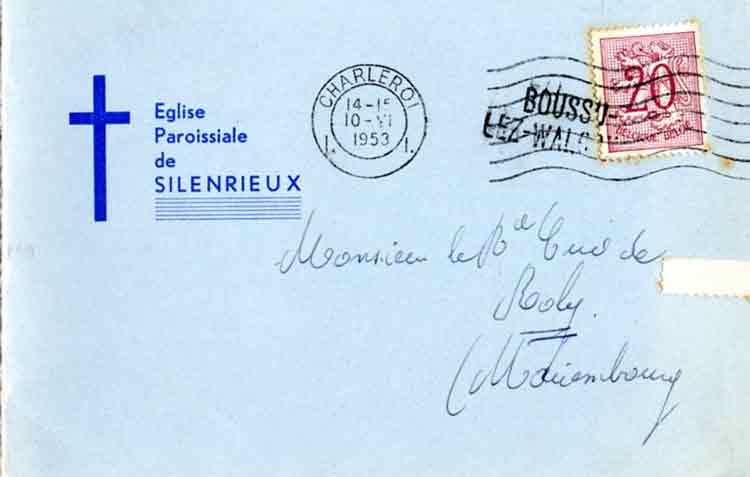 Eglise
Paroissiale
de
SILENRIEUX
CHARLEROI
14-15
10-VI
1953
1. 1.
BOUSSU-
LEZ-WALC
20
BELGIQUE-BELGIE
Monsieur le Rd Curé de
Roly
(Mariembourg